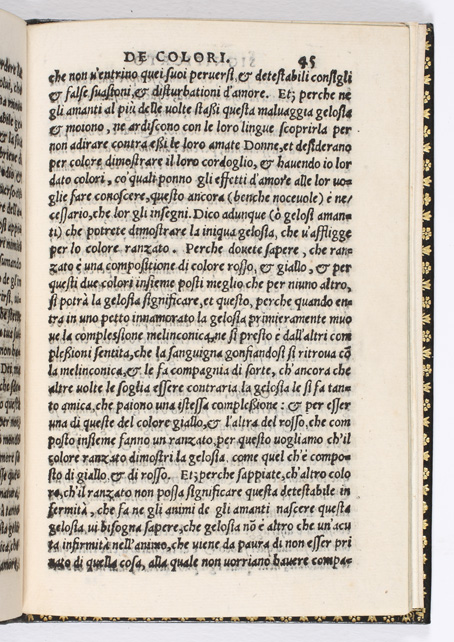 DE COLORI. 45
che non u'entrino quei suoi peruersi, & detestabili consigli
& false suasioni, & disturbationi d'amore. Et; perche ne
gli amanti al più delle uolte staßi questa maluaggia gelosia
& motono, ne ardiscono con le loro lingue scoprirla per
non adirare contra eßi le loro amate Donne, et desiderano
per colore dimostrare il loro cordoglio, & hauendo io lor
dato colori, co'quali ponno gli effetti d'amore alle lor uo=
glie fare conoscere, questo ancora (benche noceuole) è ne/
cessario, che lor gli insegni. Dico adunque (ò gelosi aman=
ti) che potrete dimostrare la iniqua gelosia, che u'affligge
per lo colore ranzato. Perche douete sapere, che ran=
zato è una compositione di colore rosso, & giallo, & per
questi due colori insieme posti meglio che per niuno altro,
si potrà la gelosia significare, et questo, perche quando en=
tra in uno petto innamorato la gelosia primieramente muo
ue la complessione melinconica, ne si presto è dall'altri com
pleßioni sentita, che la sanguigna gonfiandosi si ritroua cō
la melinconica, & le fa compagnia di sorte, ch'ancora che
altre uolte le soglia essere contraria la gelosia le si fa tan=
to amica, che paiono una istessa compleßione: & per esser
una di queste del colore giallo, & l'altra del rosso, che com
posto insieme fanno un ranzato, per questo uogliamo ch'il
colore ranzato dimostri la gelosia come quel ch'è compo=
sto di giallo & di rosso. Et; perche sappiate, ch'altro colo
re, ch'il ranzato non possa significare questa detestabile in
fermità, che fa ne gli animi de gli amanti nascere questa
gelosia, ui bisogna sapere, che gelosia nō è altro che un'acu
ta infirmità nell'animo, che uiene da paura di non esser pri
uato di quella cosa, alla quale non uorriano hauere compa=